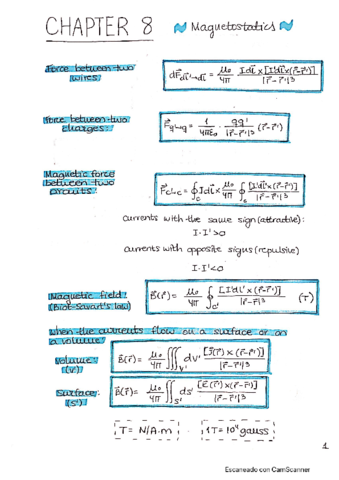 CHAPTER 8 ~ Magnetostatics ~
Force between two
wires:
dF⃗_dl'→dl = μ₀/4π · I dl⃗ × [I' dl⃗' × (r⃗-r⃗')] / |r⃗-r⃗'|³
Force between two
charges:
F⃗_q'→q = 1/4πε₀ · qq'/|r⃗-r⃗'|³ (r⃗-r⃗')
Magnetic force
between two
circuits:
F⃗_c'→c = ∮_c I dl⃗ × μ₀/4π ∮_c' [I' dl⃗' × (r⃗-r⃗')] / |r⃗-r⃗'|³
currents with the same sign (attractive):
I·I'>0
currents with opposite signs (repulsive)
I·I'<0
Magnetic field:
(Biot-Savart's law)
B⃗(r⃗) = μ₀/4π ∮_c' [I' dl⃗' × (r⃗-r⃗')] / |r⃗-r⃗'|³ (T)
When the currents flow on a surface or on
a volume:
Volume:
(V')
B⃗(r⃗) = μ₀/4π ∭_V' dv' [J⃗(r⃗') × (r⃗-r⃗')] / |r⃗-r⃗'|³
Surface:
(S')
B⃗(r⃗) = μ₀/4π ∬_S' ds' × (r⃗-r⃗')] / |r⃗-r⃗'|³
T = N/A·m 1T = 10⁴ gauss
1
Escaneado con CamScanner